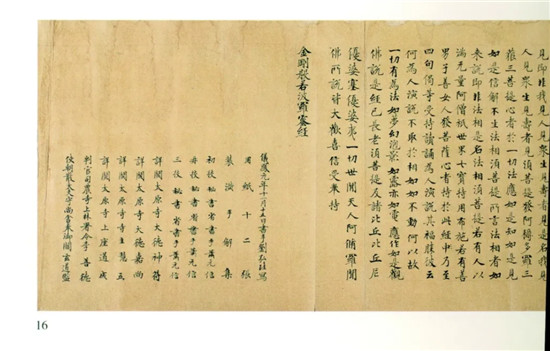 見即非我見人見衆生見壽者見是名我見
人見衆生見壽者見須菩提發阿耨多羅三
藐三菩提心者於一切法應如是知如是見
如是信解不生法相須菩提所言法相者如
來說即非法相是名法相須菩提若有人以
滿无量阿僧祇世界七寶持用布施若有善
男子善女人發菩薩心者持於此經乃至
四句偈等受持讀誦為人演說其福勝彼云
何為人演說不取於相如如不動何以故
一切有為法如夢幻泡影如露亦如電應作如是觀
佛說是經已長老須菩提及諸比丘比丘尼
優婆塞優婆夷一切世間天人阿脩羅聞
佛所說皆大歡喜信受奉持
金剛般若波羅蜜經
儀鳳元年十一月十五日書手劉弘珪寫
用紙十二張
裝潢手解集
初校秘書省書手蕭元信
再校秘書省書手蕭元信
三校秘書省書手蕭元信
詳閱太原寺大德神符
詳閱太原寺大德嘉尚
詳閱太原寺寺主慧立
詳閱太原寺上座道成
判官司農寺上林署令李善德
使朝散大夫守尚舍奉御閻玄道監
16